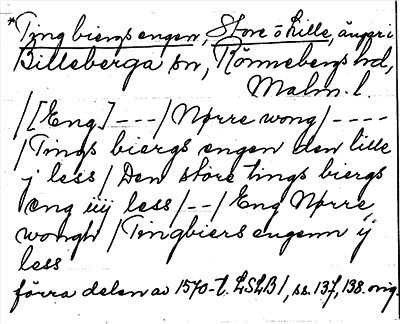 *Ting biergs engen, Store o Lille, ängar i
Billeberga sn, Rönnebergs hd,
Malm. l.
/[Eng.] --- / Nørre wong / ----
/ Tings biergs engen den lille
j less / Den störe tings biergs
eng iiij less / -- / Eng Nørre
wongh / Tingbiers engenn ij
less
förra delen av 1570-t. LSLB 1, ss. 137, 138. orig.